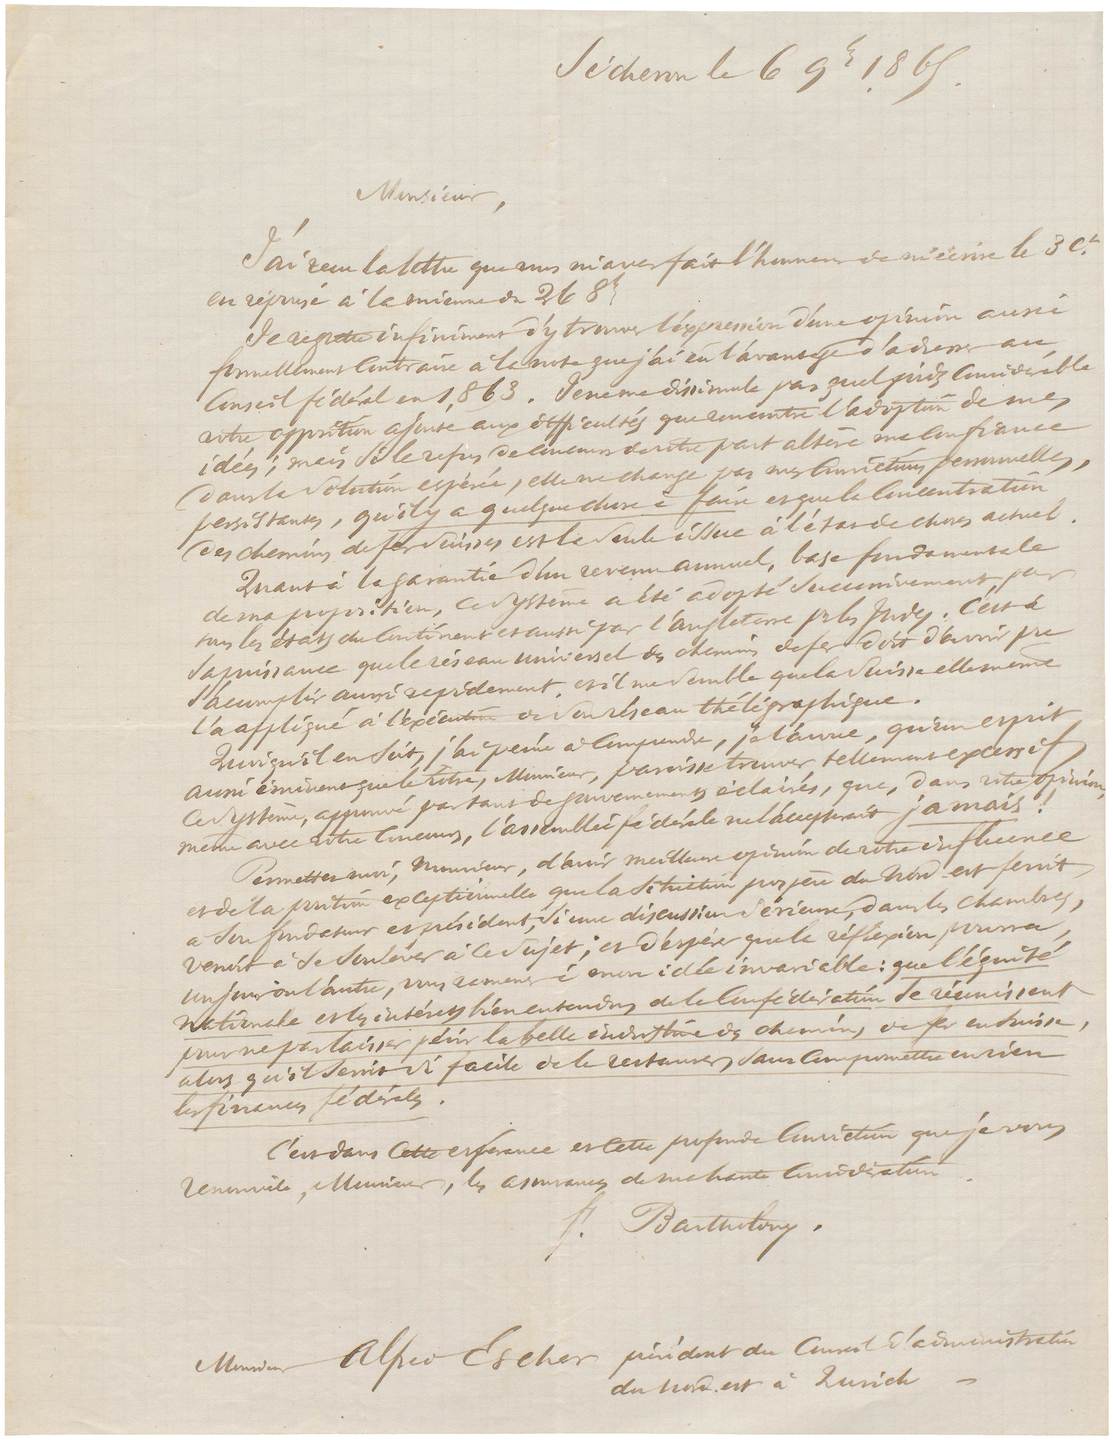 Sécheron le 6 9bre 1865.
Monsieur,
J'ai reçu la lettre que vous m'avez fait l'honneur de m'écrire le 3 Ct.
en réponse à la mienne du 26 8bre
Je regrette infiniment d'y trouver l'expression d'une opinion aussi
formellement contraire à la note que j'ai eu l'avantage d'adresser au
Conseil fédéral en 1863. Je ne me dissimule pas quel poids considérable
votre opposition ajoute aux difficultés que rencontre l'adoption de mes
idées; mais si le refus de concours de votre part altère ma confiance
dans la solution espérée, elle ne change pas mes convictions personnelles,
persistantes, qu'il y a quelque chose à faire et que la concentration
des chemins de fer Suisses est la seule issue à l'état de choses actuel.
Quant à la garantie d'un revenu annuel, base fondamentale
de ma proposition, ce système a été adopté successivement par
tous les états du Continent et aussi par l'angleterre pr les Indes. C'est à
sa puissance que le réseau universel des chemins de fer doit d'avoir pu
s'accomplir aussi rapidement. et il me semble que la Suisse elle même
l'a appliqué à l'exécution de son réseau thélégraphique.
Quoiqu'il en soit, j'ai peine à comprendre, je l'avoue, qu'un esprit
aussi éminent que le vôtre, Monsieur, paraisse trouver tellement excessif
ce système, approuvé par tant de gouvernements éclairés, que, dans votre opinion,
même avec votre concours, l'assemblée fédérale ne l'accepterait jamais!
Permettez moi, Monsieur, d'avoir meilleure opinion de votre influence
et de la position exceptionnelle que la situation prospère du Nord-est ferait
a son fondateur et président, si une discussion sérieuse, dans les chambres,
venait à se soulever à ce sujet; et d'espérer que la réflexion pourra,
un jour ou l'autre, vous ramener à mon idée invariable: que l'équité
nationale et les intérêts bien entendus de la Confédération se réunissent
pour ne pas laisser périr la belle industrie des chemins de fer en Suisse,
alors qu'il serait si facile de la restaurer, sans compromettre en rien
les finances fédérales.
C'est dans cette espérance et cette profonde conviction que je vous
renouvelle, Monsieur, les assurances de ma haute considération.
f. Bartholony.
Monsieur Alfred Escher président du Conseil d'administration
du Nord-est à Zurich